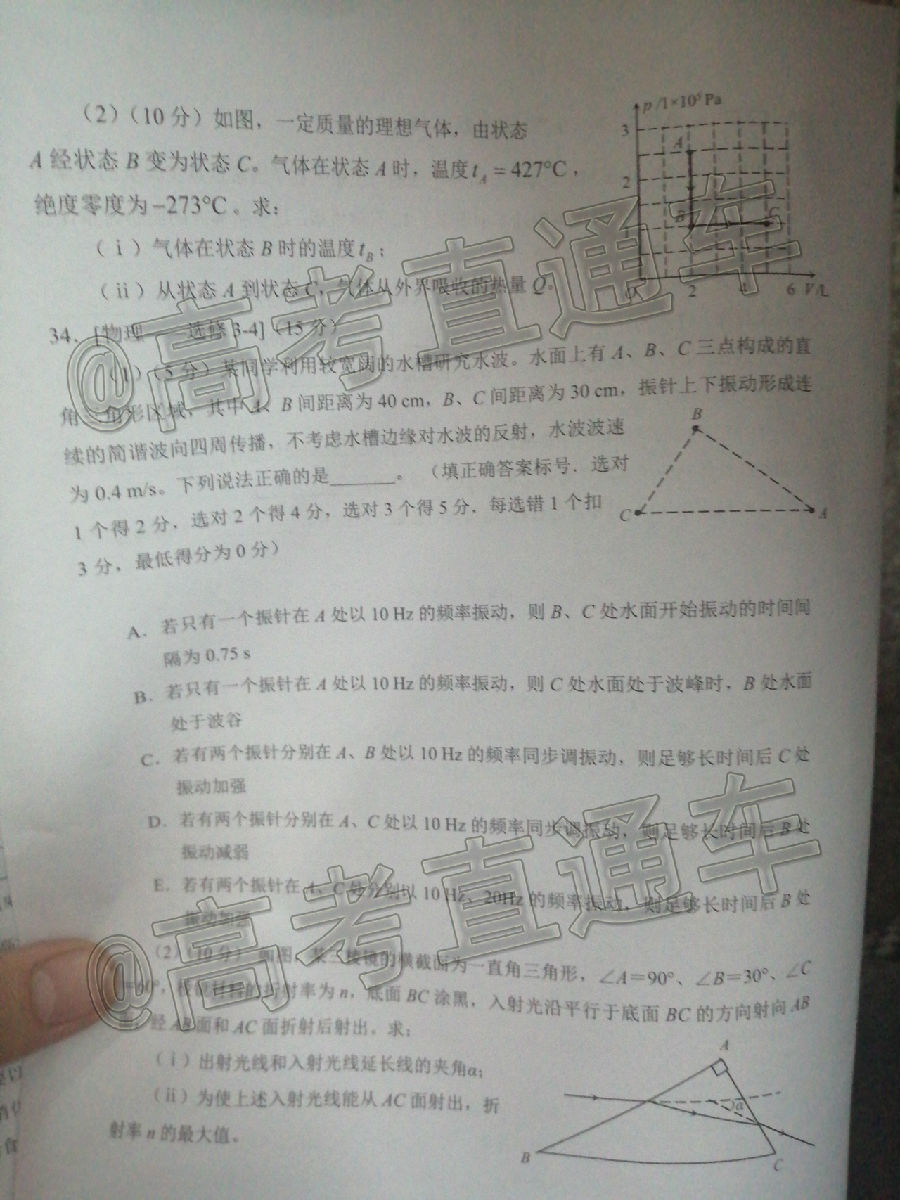 (2)(10分)如图，一定质量的理想气体，由状态
A经状态B变为状态C。气体在状态A时，温度t_A=427°C，
绝度零度为-273°C。求：
(ⅰ)气体在状态B时的温度t_B；
(ⅱ)从状态A到状态C，气体从外界吸收的热量Q。
p/1×10⁵Pa
3
A
2
B
C
0
2
4
6 V/L
34. [物理——选修3-4](15分)
(1)(5分)某同学利用较宽阔的水槽研究水波。水面上有A、B、C三点构成的直
角三角形区域，其中A、B间距离为40 cm，B、C间距离为30 cm，振针上下振动形成连
续的简谐波向四周传播，不考虑水槽边缘对水波的反射，水波波速
为0.4 m/s。下列说法正确的是______。（填正确答案标号．选对
1个得2分，选对2个得4分，选对3个得5分．每选错1个扣
3分，最低得分为0分）
B
C
A
A．若只有一个振针在A处以10 Hz的频率振动，则B、C处水面开始振动的时间间
隔为0.75 s
B．若只有一个振针在A处以10 Hz的频率振动，则C处水面处于波峰时，B处水面
处于波谷
C．若有两个振针分别在A、B处以10 Hz的频率同步调振动，则足够长时间后C处
振动加强
D．若有两个振针分别在A、C处以10 Hz的频率同步调振动，则足够长时间后B处
振动减弱
E．若有两个振针在A、C处分别以10 Hz、20Hz的频率振动，则足够长时间后B处
振动加强
(2)(10分) 如图，某三棱镜的横截面为一直角三角形，∠A=90°、∠B=30°、∠C
=60°，棱镜材料的折射率为n，底面BC涂黑，入射光沿平行于底面BC的方向射向AB
经AB面和AC面折射后射出。求：
(ⅰ)出射光线和入射光线延长线的夹角α；
(ⅱ)为使上述入射光线能从AC面射出，折
射率n的最大值。
A
α
B
C
@高考直通车
@高考直通车